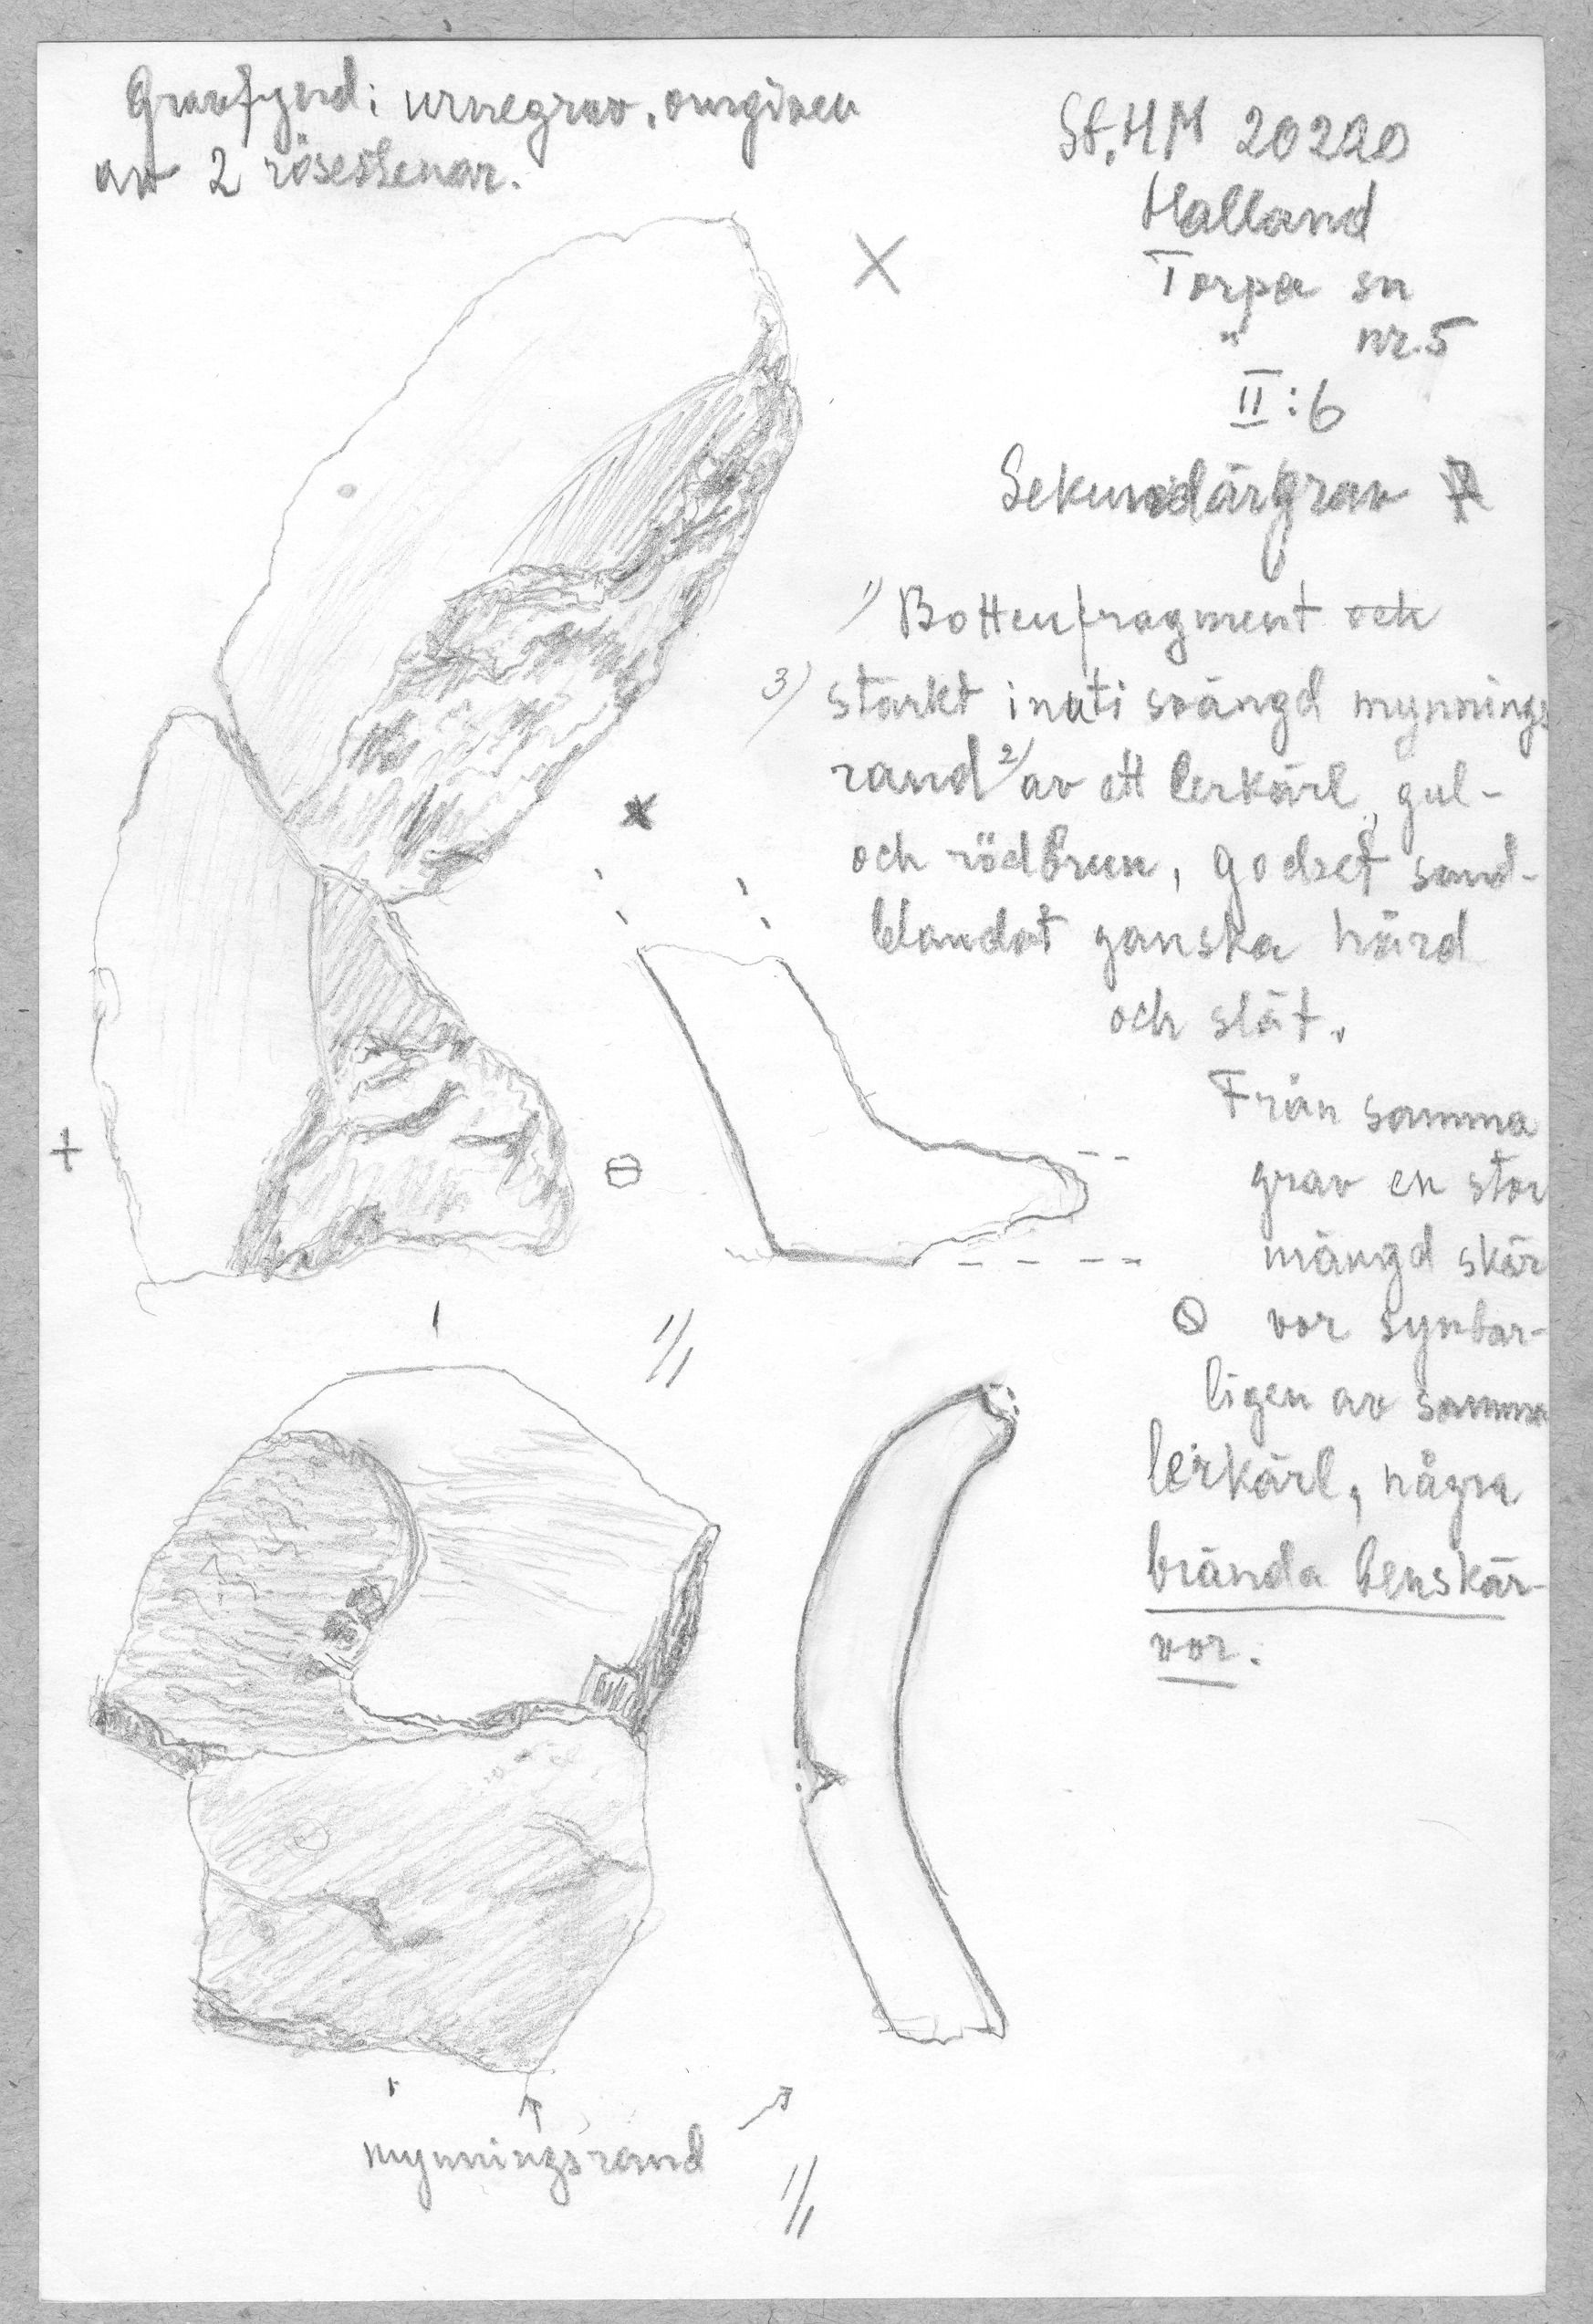 Gravfynd: urnegrav, omgiven
av 2 rösestenar.
St. HM 20220
Halland
Torpa sn
" nr. 5
II:6
Sekundärgrav
1) Bottenfragment och
3) starkt inåti svängd mynnings
rand 2) av ett lerkärl, gul-
och rödbrun, godset sand-
blandat ganska hård
och slät.
Från samma
grav en stor
mängd skär
vor synbar-
ligen av samma
lerkärl, några
brända benskär-
vor.
1/1
mynningsrand
1/1